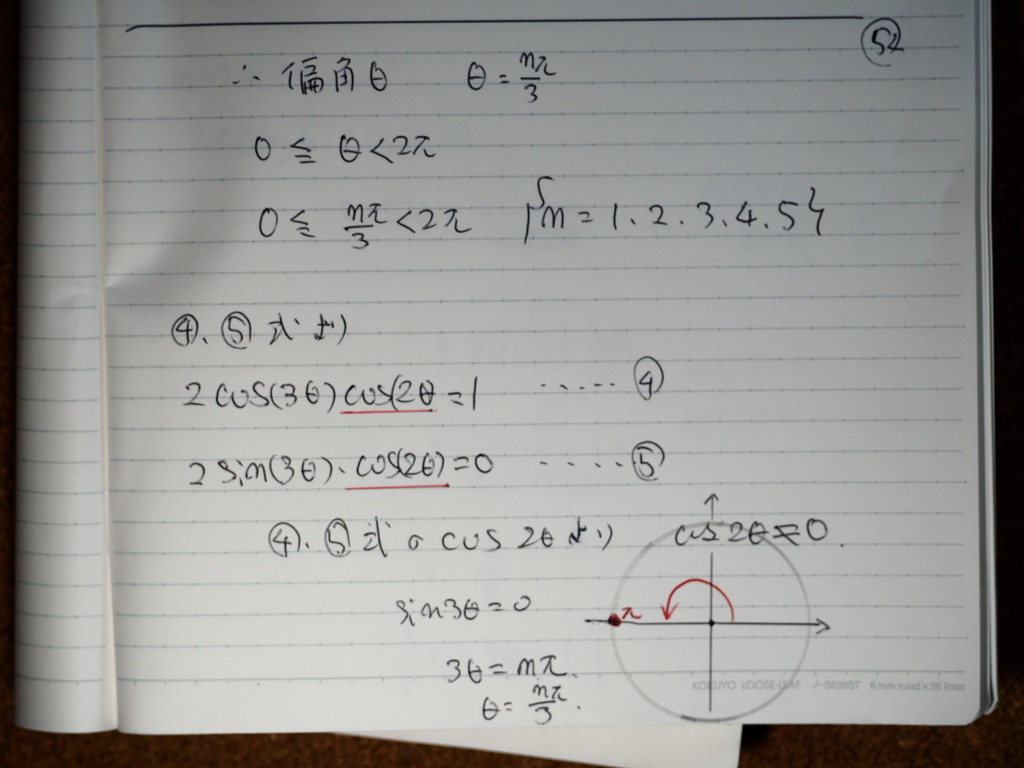 52
∴ 偏角θ θ = nπ/3
0 ≦ θ < 2π
0 ≦ nπ/3 < 2π {n = 1.2.3.4.5}
④.⑤式より
2cos(3θ)cos(2θ = 1 ...... ④
2sin(3θ)・cos(2θ) = 0 ..... ⑤
④.⑤式の cos 2θ より cos 2θ ≠ 0.
sin3θ = 0
π
3θ = nπ.
KOKUYO LOOSE-LEAF ノ-S836BT 6 mm ruled×36 lines
θ = nπ/3.